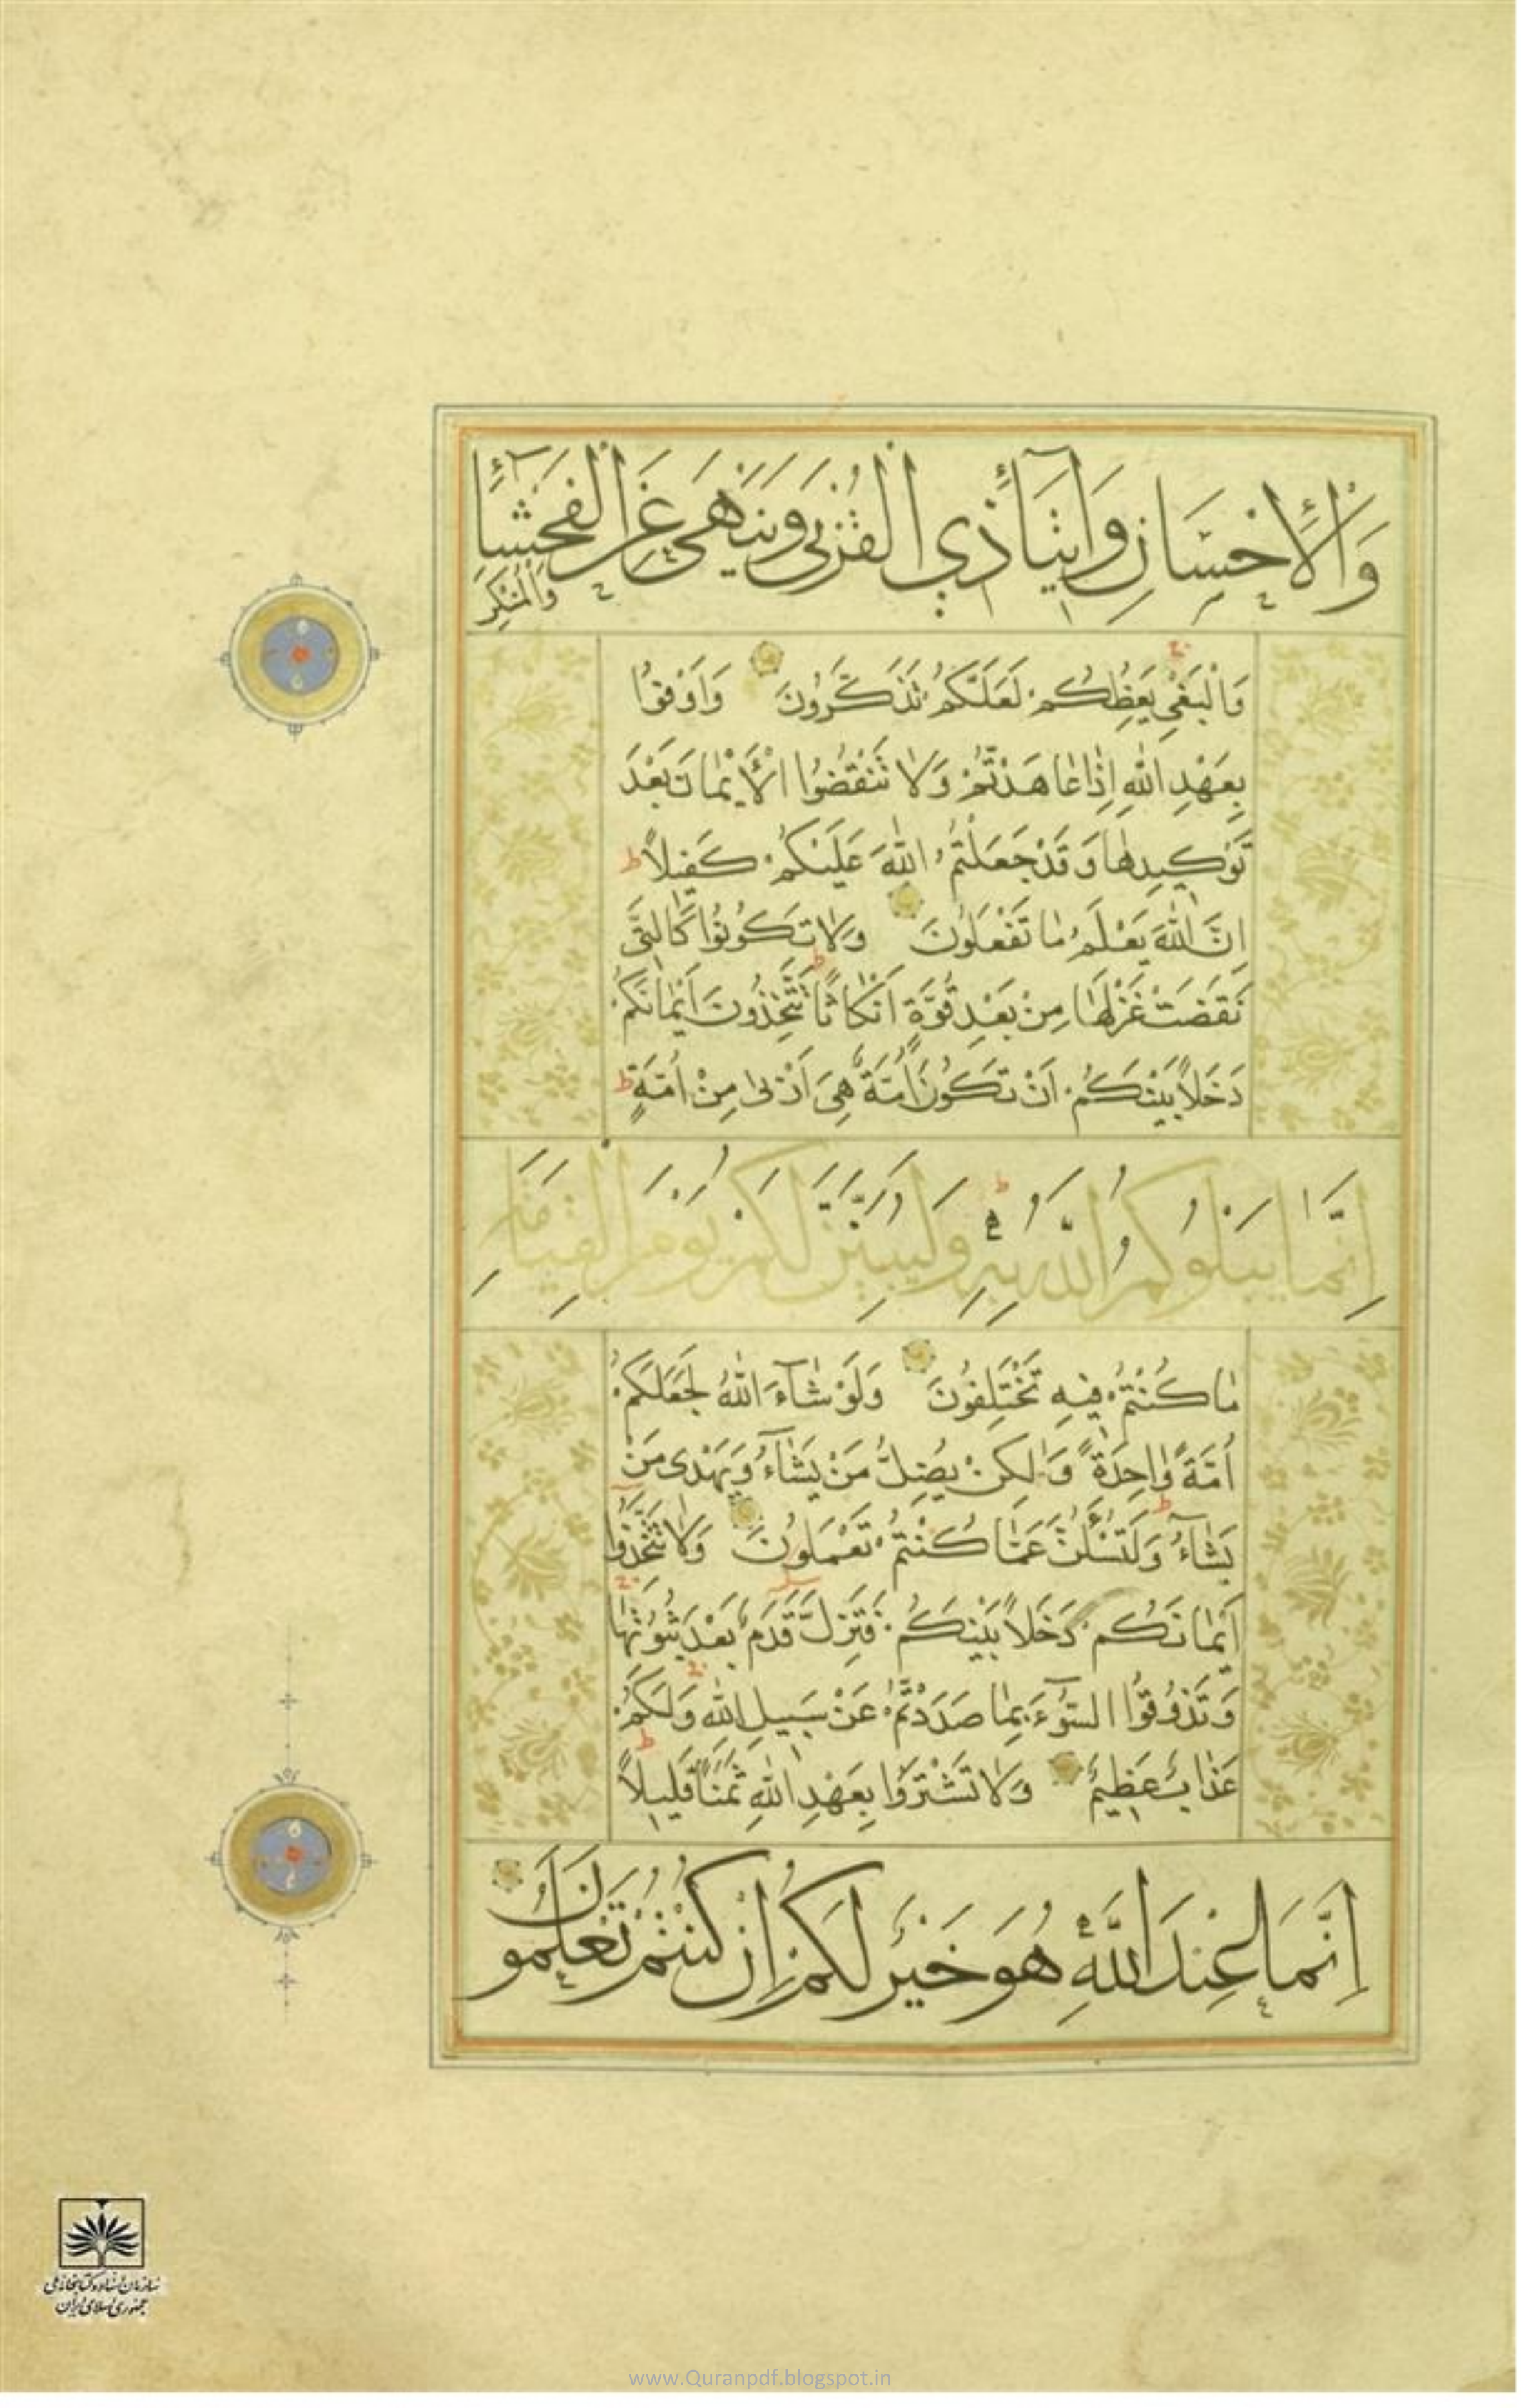 وَالْاِحْسَانِ وَاِيتَآئِ ذِي الْقُرْبٰى وَيَنْهٰى عَنِ الْفَحْشَآءِ
وَالْمُنْكَرِ
وَالْبَغْيِ يَعِظُكُمْ لَعَلَّكُمْ تَذَكَّرُونَ وَاَوْفُوا
بِعَهْدِ اللّٰهِ اِذَا عَاهَدْتُمْ وَلَا تَنْقُضُوا الْاَيْمَانَ بَعْدَ
تَوْكِيدِهَا وَقَدْ جَعَلْتُمُ اللّٰهَ عَلَيْكُمْ كَفِيلاً ط
اِنَّ اللّٰهَ يَعْلَمُ مَا تَفْعَلُونَ وَلَا تَكُونُوا كَالَّتِى
نَقَضَتْ غَزْلَهَا مِنْ بَعْدِ قُوَّةٍ اَنْكَاثًا ط تَتَّخِذُونَ اَيْمَانَكُمْ
دَخَلاً بَيْنَكُمْ اَنْ تَكُونَ اُمَّةٌ هِيَ اَرْبٰى مِنْ اُمَّةٍ ط
اِنَّمَا يَبْلُوكُمُ اللّٰهُ بِهِ ط وَلَيُبَيِّنَنَّ لَكُمْ يَوْمَ الْقِيَامَةِ
مَا كُنْتُمْ فِيهِ تَخْتَلِفُونَ وَلَوْ شَآءَ اللّٰهُ لَجَعَلَكُمْ
اُمَّةً وَاحِدَةً وَلٰكِنْ يُضِلُّ مَنْ يَشَآءُ وَيَهْدِى مَنْ
يَشَآءُ ط وَلَتُسْئَلُنَّ عَمَّا كُنْتُمْ تَعْمَلُونَ وَلَا تَتَّخِذُوا
اَيْمَانَكُمْ دَخَلاً بَيْنَكُمْ فَتَزِلَّ قَدَمٌ بَعْدَ ثُبُوتِهَا
وَتَذُوقُوا السُّوٓءَ بِمَا صَدَدْتُمْ عَنْ سَبِيلِ اللّٰهِ وَلَكُمْ
عَذَابٌ عَظِيمٌ وَلَا تَشْتَرُوا بِعَهْدِ اللّٰهِ ثَمَنًا قَلِيلاً ط
اِنَّمَا عِنْدَ اللّٰهِ هُوَ خَيْرٌ لَكُمْ اِنْ كُنْتُمْ تَعْلَمُونَ
سازمان اسناد و کتابخانه ملی
جمهوری اسلامی ایران
www.Quranpdf.blogspot.in